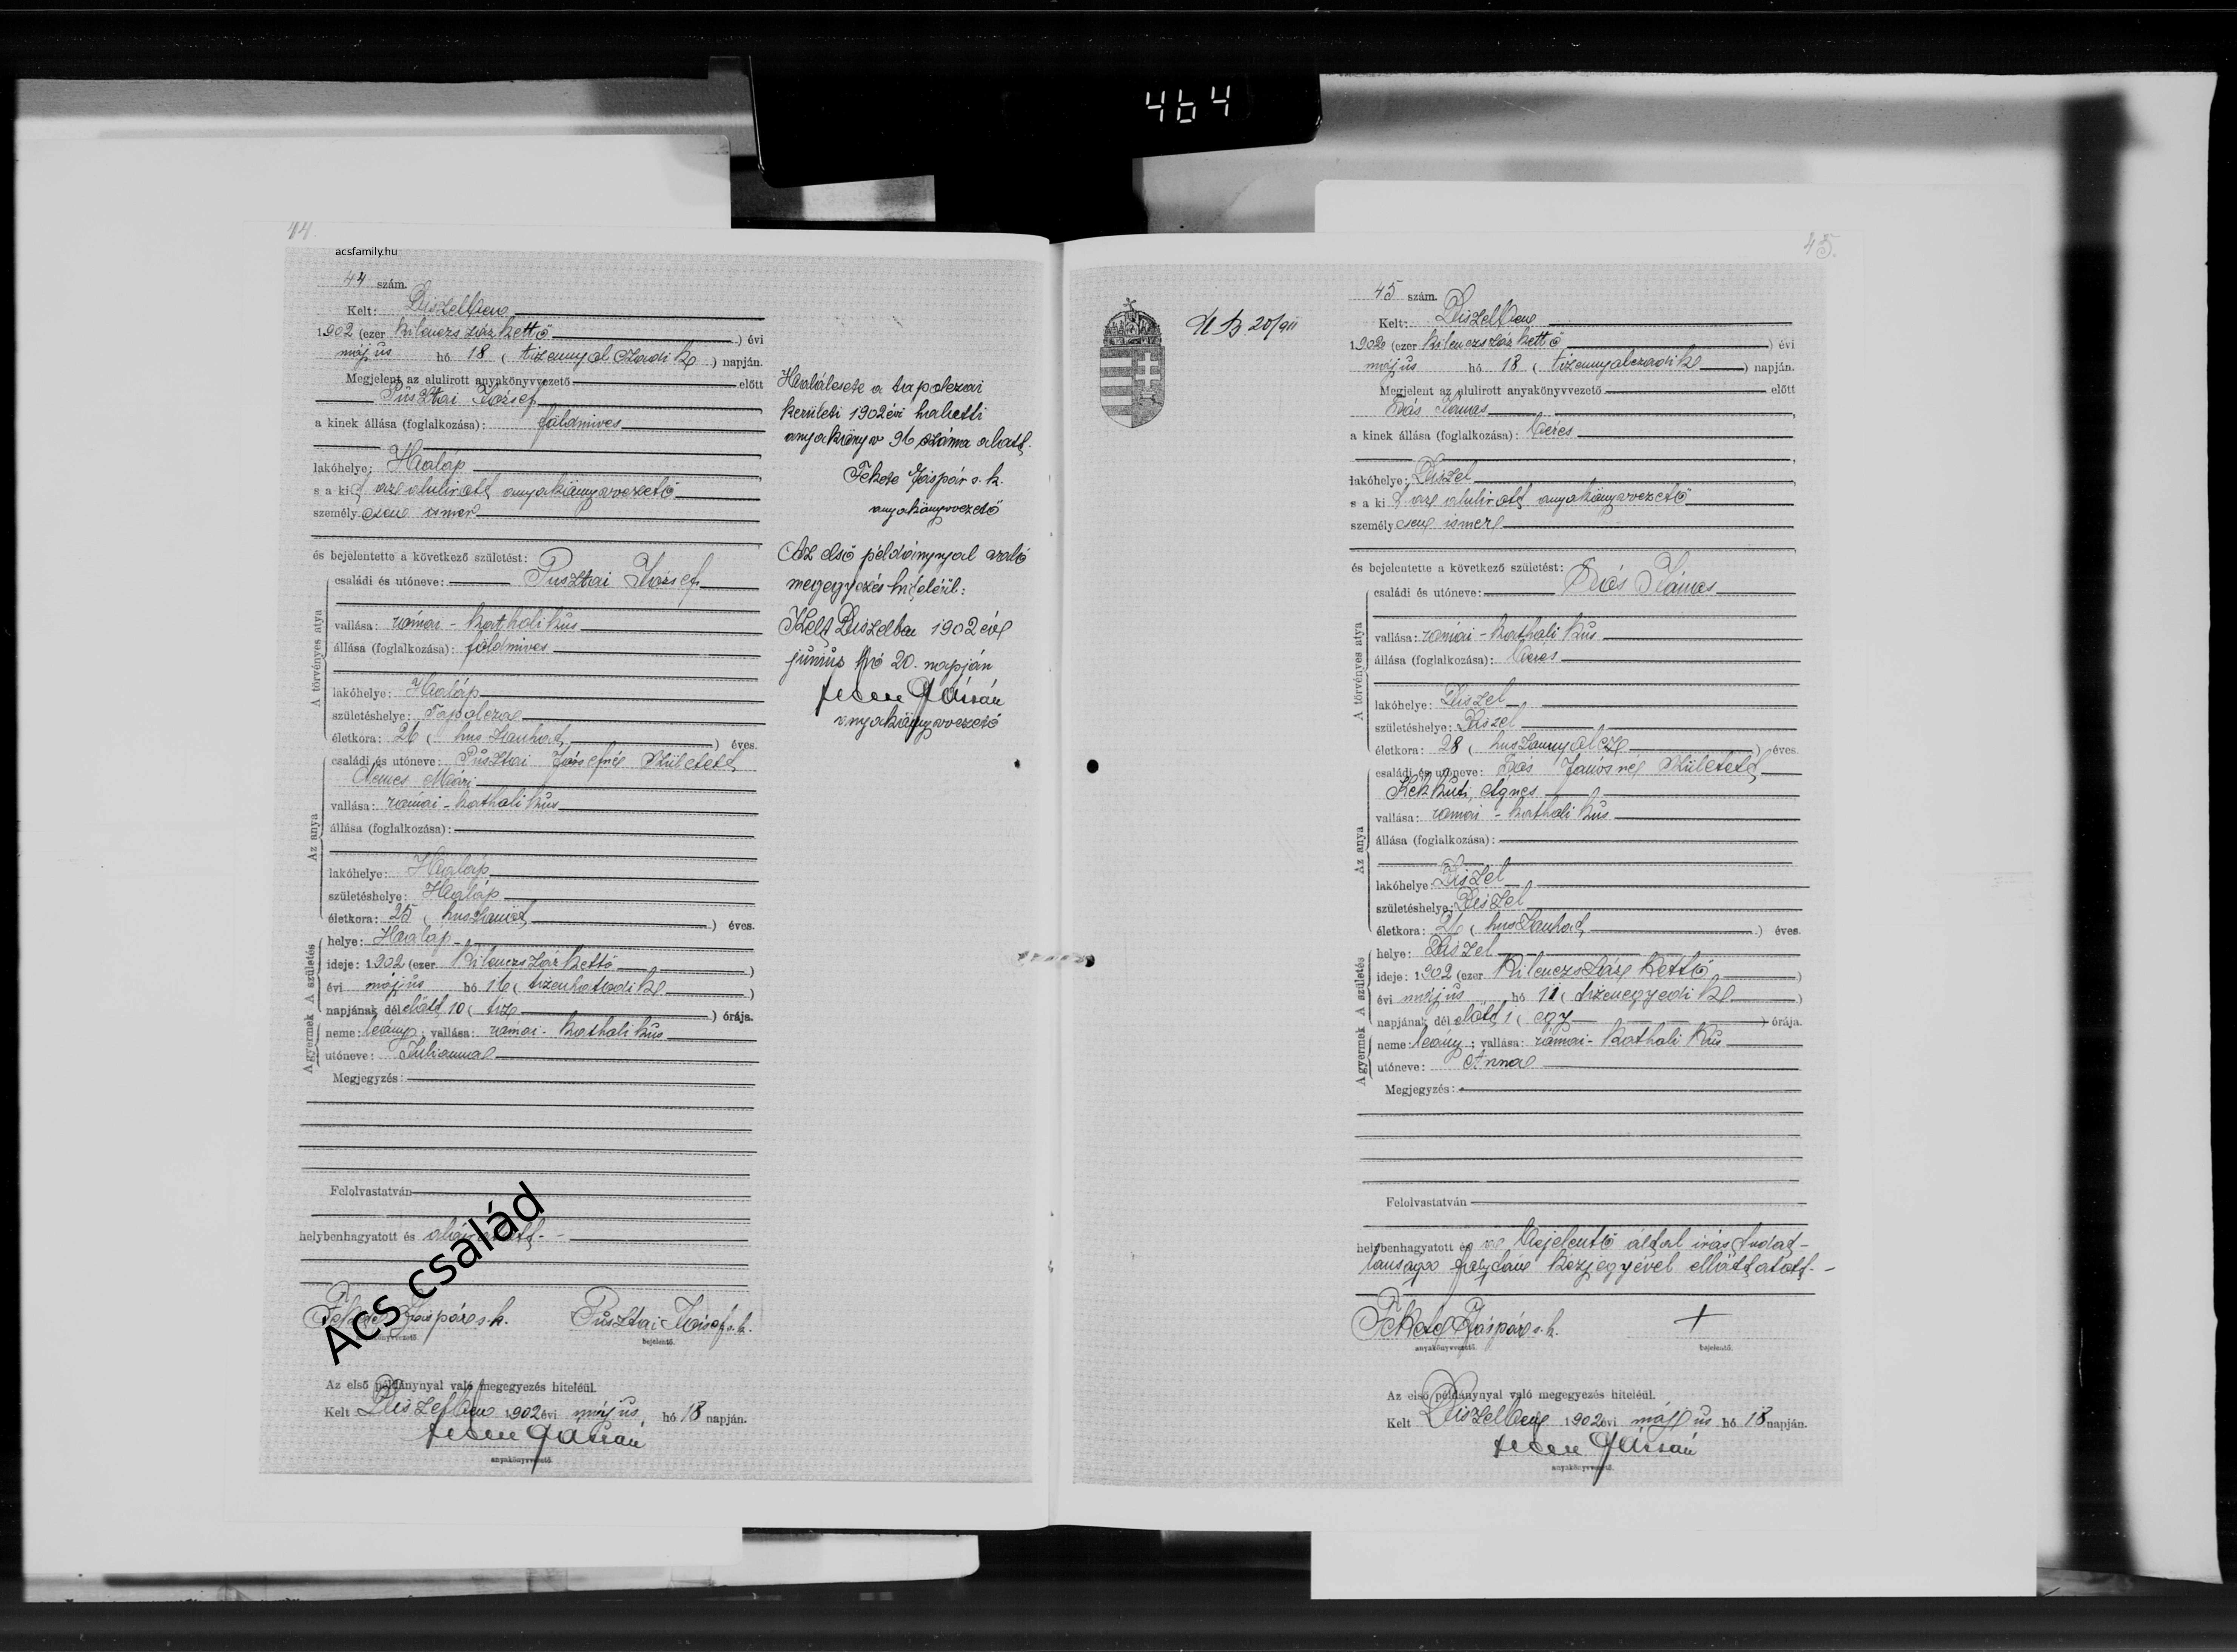 464
44.
acsfamily.hu
44 szám.
Kelt: Diszelben
1902 (ezer kilenczszázkettő) évi
május hó 18 (tizennyolczadik) napján.
Megjelent az alulirott anyakönyvvezető előtt
Pusztai József
a kinek állása (foglalkozása): földmives
lakóhelye: Haláp
s a kit az alulirott anyakönyvvezető
személyesen ismer
és bejelentette a következő születést:
A törvényes atya
családi és utóneve: Pusztai József
vallása: római-katholikus
állása (foglalkozása): földmives
lakóhelye: Haláp
születéshelye: Tapolcza
életkora: 26 (huszonhat) éves.
Az anya
családi és utóneve: Pusztai Józsefné született
Nemes Mári
vallása: római-katholikus
állása (foglalkozása):
lakóhelye: Haláp
születéshelye: Haláp
életkora: 25 (huszonöt) éves.
A gyermek A születés
helye: Haláp
ideje: 1902 (ezer kilenczszázkettő)
évi május hó 16 (tizenhatodik)
napjának délelőtt 10 (tiz) órája.
neme: leány; vallása: római-katholikus
utóneve: Julianna
Megjegyzés:
Felolvastatván
helybenhagyatott és aláiratott.
Ács család
Fekete Gáspár s.k.
anyakönyvvezető.
Pusztai József s.k.
bejelentő.
Az első példánynyal való megegyezés hiteléül.
Kelt Diszelben 1902 évi május hó 18 napján.
Fekete Gáspár
anyakönyvvezető.
Halálesete a tapolczai
kerületi 1902 évi halotti
anyakönyv 96 száma alatt.
Fekete Gáspár s.k.
anyakönyvvezető
Az első példánynyal való
megegyezés hiteléül:
Kelt Diszelben 1902 évi
június hó 20. napján
Fekete Gáspár
anyakönyvvezető
45.
20/911
45 szám.
Kelt: Diszelben
1902 (ezer kilenczszázkettő) évi
május hó 18 (tizennyolczadik) napján.
Megjelent az alulirott anyakönyvvezető előtt
János
a kinek állása (foglalkozása): béres
lakóhelye: Diszel
s a kit az alulirott anyakönyvvezető
személyesen ismer
és bejelentette a következő születést:
A törvényes atya
családi és utóneve: János
vallása: római-katholikus
állása (foglalkozása): béres
lakóhelye: Diszel
születéshelye: Diszel
életkora: 28 (huszonnyolcz) éves.
Az anya
családi és utóneve: Jánosné született
Kékkuti Ágnes
vallása: római-katholikus
állása (foglalkozása):
lakóhelye: Diszel
születéshelye: Diszel
életkora: 26 (huszonhat) éves.
A gyermek A születés
helye: Diszel
ideje: 1902 (ezer kilenczszáz kettő)
évi május hó 11 (tizenegyedik)
napjának délelőtt 1 (egy) órája.
neme: leány; vallása: római-katholikus
utóneve: Anna
Megjegyzés:
Felolvastatván
helybenhagyatott és a bejelentő által irástudat-
lansága folytán kézjegyével elláttatott.
Fekete Gáspár s.k.
anyakönyvvezető.
+
bejelentő.
Az első példánynyal való megegyezés hiteléül.
Kelt Diszelben 1902 évi május hó 18 napján.
Fekete Gáspár
anyakönyvvezető.